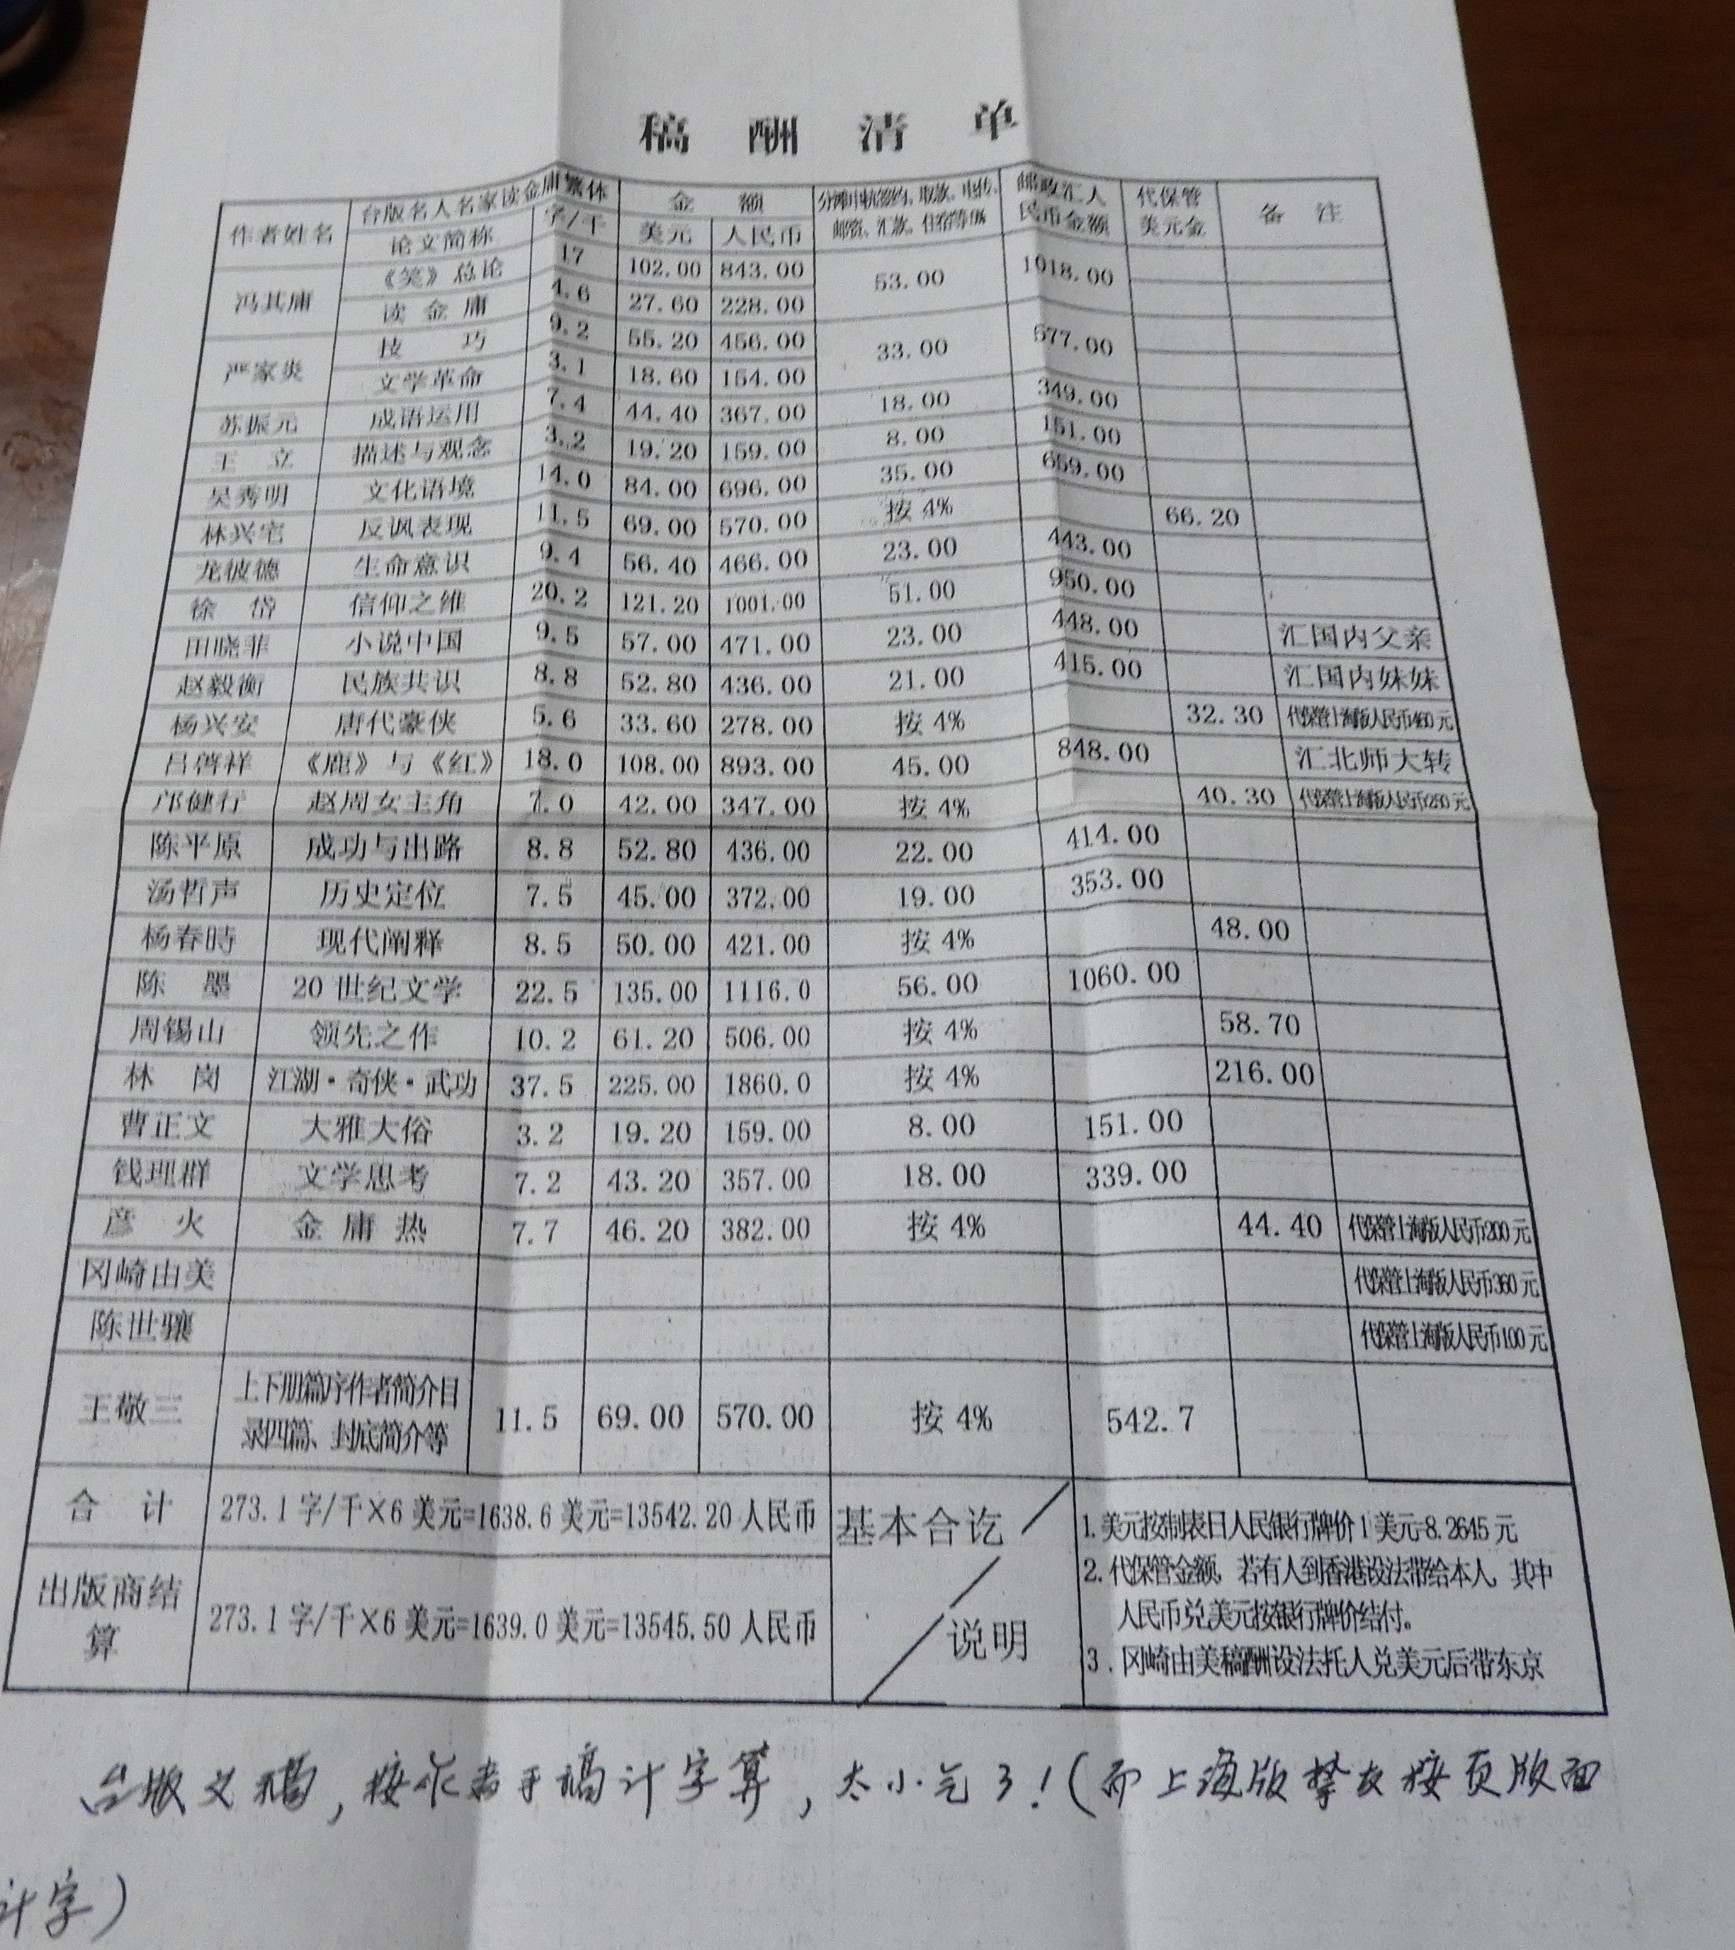 稿 酬 清 单
作者姓名 台版名人名家读金庸繁体 论文简称 字/千 金 额 美元 人民币 邮资、汇款、住宿等4% 邮政汇人民币金额 代保管美元金 备 注
冯其庸 《笑》总论 17 102.00 843.00 53.00 1018.00
读金庸 4.6 27.60 228.00
严家炎 技 巧 9.2 55.20 456.00 33.00 577.00
文学革命 3.1 18.60 154.00
苏振元 成语运用 7.4 44.40 367.00 18.00 349.00
王 立 描述与观念 3.2 19.20 159.00 8.00 151.00
吴秀明 文化语境 14.0 84.00 696.00 35.00 659.00
林兴宅 反讽表现 11.5 69.00 570.00 按 4% 66.20
龙彼德 生命意识 9.4 56.40 466.00 23.00 443.00
徐 岱 信仰之维 20.2 121.20 1001.00 51.00 950.00
田晓菲 小说中国 9.5 57.00 471.00 23.00 448.00 汇国内父亲
赵毅衡 民族共识 8.8 52.80 436.00 21.00 415.00 汇国内妹妹
杨兴安 唐代豪侠 5.6 33.60 278.00 按 4% 32.30 代保管上海版人民币460元
吕启祥 《鹿》与《红》 18.0 108.00 893.00 45.00 848.00 汇北师大转
邝健行 赵周女主角 7.0 42.00 347.00 按 4% 40.30 代保管上海版人民币250元
陈平原 成功与出路 8.8 52.80 436.00 22.00 414.00
汤哲声 历史定位 7.5 45.00 372.00 19.00 353.00
杨春時 现代阐释 8.5 50.00 421.00 按 4% 48.00
陈 墨 20世纪文学 22.5 135.00 1116.0 56.00 1060.00
周锡山 领先之作 10.2 61.20 506.00 按 4% 58.70
林 岗 江湖·奇侠·武功 37.5 225.00 1860.0 按 4% 216.00
曹正文 大雅大俗 3.2 19.20 159.00 8.00 151.00
钱理群 文学思考 7.2 43.20 357.00 18.00 339.00
彦 火 金庸热 7.7 46.20 382.00 按 4% 44.40 代保管上海版人民币200元
冈崎由美 代保管上海版人民币360元
陈世骧 代保管上海版人民币100元
王敬三 上下册篇序作者简介目录四篇、封底简介等 11.5 69.00 570.00 按 4% 542.7
合 计 273.1字/千×6美元=1638.6美元=13542.20人民币
出版商结算 273.1字/千×6美元=1639.0美元=13545.50人民币
基本合讫／说明
1.美元按制表日人民银行牌价1美元=8.2645元
2.代保管金额，若有人到香港设法带给本人，其中
人民币兑美元按银行牌价结付。
3.冈崎由美稿酬设法托人兑美元后带东京
台版文稿，按作者手稿计字算，太小气了！(而上海版挚友按页版面
计字)